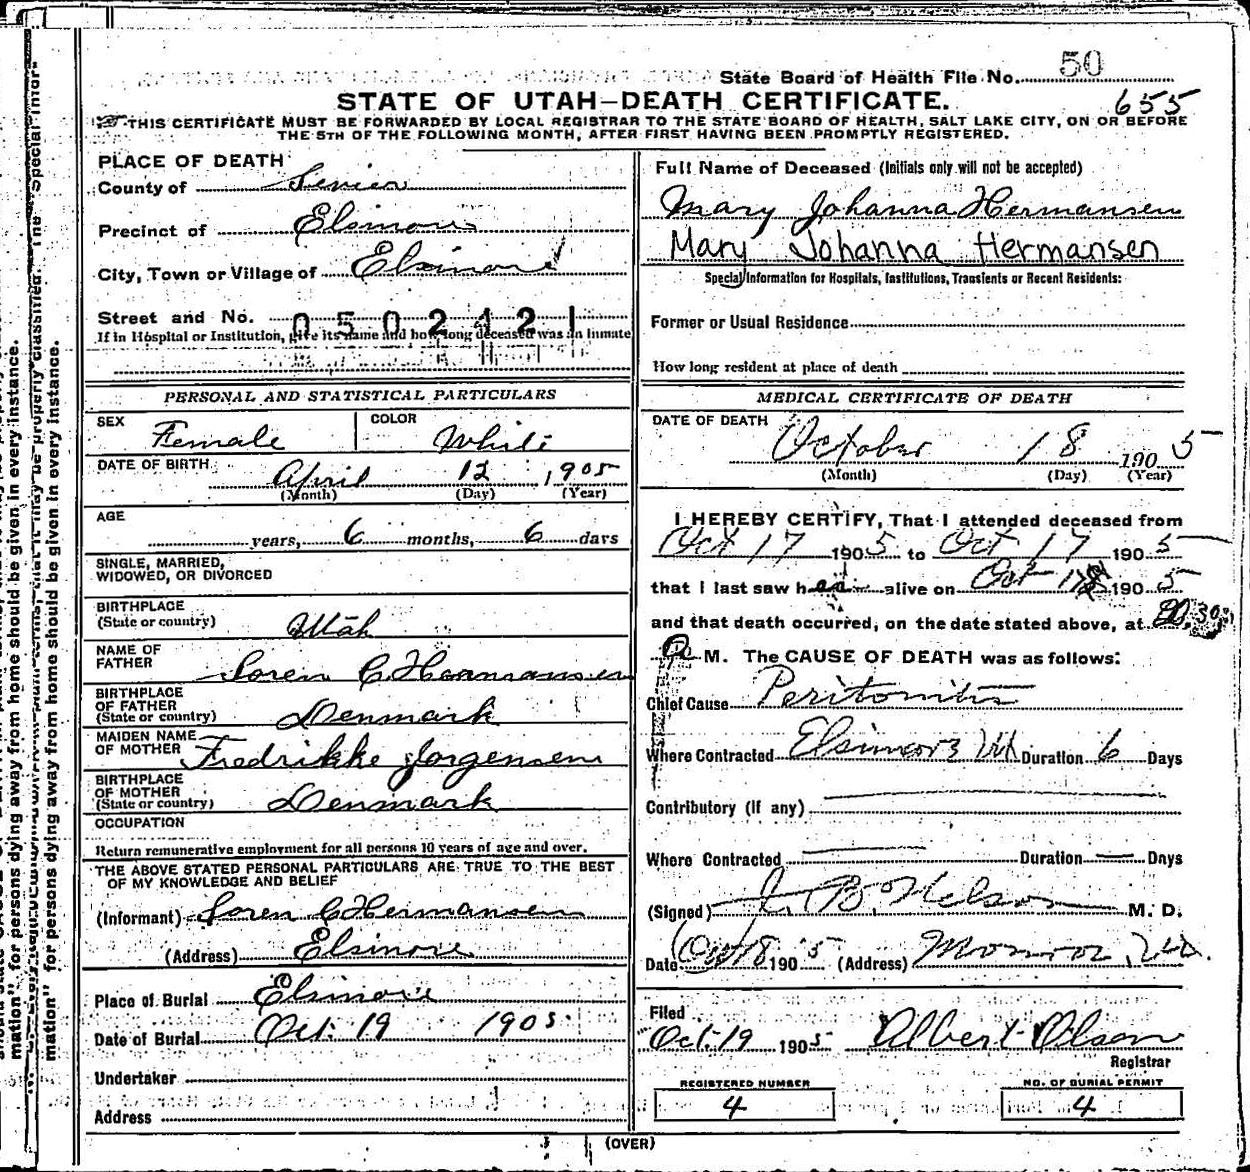 State Board of Health File No. 50
STATE OF UTAH—DEATH CERTIFICATE. 655
THIS CERTIFICATE MUST BE FORWARDED BY LOCAL REGISTRAR TO THE STATE BOARD OF HEALTH, SALT LAKE CITY, ON OR BEFORE
THE 5TH OF THE FOLLOWING MONTH, AFTER FIRST HAVING BEEN PROMPTLY REGISTERED.
PLACE OF DEATH
County of Sevier
Precinct of Elsinore
City, Town or Village of Elsinore
Street and No. 0502421
If in Hospital or Institution, give its name and how long deceased was an inmate
PERSONAL AND STATISTICAL PARTICULARS
SEX Female COLOR White
DATE OF BIRTH April 12, 1905
(Month) (Day) (Year)
AGE
years, 6 months, 6 days
SINGLE, MARRIED,
WIDOWED, OR DIVORCED
BIRTHPLACE
(State or country) Utah
NAME OF
FATHER Soren C Hermansen
BIRTHPLACE
OF FATHER
(State or country) Denmark
MAIDEN NAME
OF MOTHER Fredrikke Jorgensen
BIRTHPLACE
OF MOTHER
(State or country) Denmark
OCCUPATION
Return remunerative employment for all persons 10 years of age and over.
THE ABOVE STATED PERSONAL PARTICULARS ARE TRUE TO THE BEST
OF MY KNOWLEDGE AND BELIEF
(Informant) Soren C Hermansen
(Address) Elsinore
Place of Burial Elsinore
Date of Burial Oct. 19 1905
Undertaker
Address
Full Name of Deceased (Initials only will not be accepted)
Mary Johanna Hermansen
Mary Johanna Hermansen
Special Information for Hospitals, Institutions, Transients or Recent Residents:
Former or Usual Residence
How long resident at place of death
MEDICAL CERTIFICATE OF DEATH
DATE OF DEATH
October 18 1905
(Month) (Day) (Year)
I HEREBY CERTIFY, That I attended deceased from
Oct 17 1905 to Oct 17 1905
that I last saw her alive on Oct 1905
and that death occurred, on the date stated above, at
M. The CAUSE OF DEATH was as follows:
Chief Cause Peritonitis
Where Contracted Elsinore Ut Duration 6 Days
Contributory (if any)
Where Contracted Duration — Days
(Signed) B. Nelson M. D.
Date Oct 18 1905 (Address) Monroe, Ut.
Filed
Oct. 19 1905 Albert Olson
Registrar
REGISTERED NUMBER
4
NO. OF BURIAL PERMIT
4
(OVER)
mation" for persons dying away from home should be given in every instance.
mation" for persons dying away from home should be given in every instance.